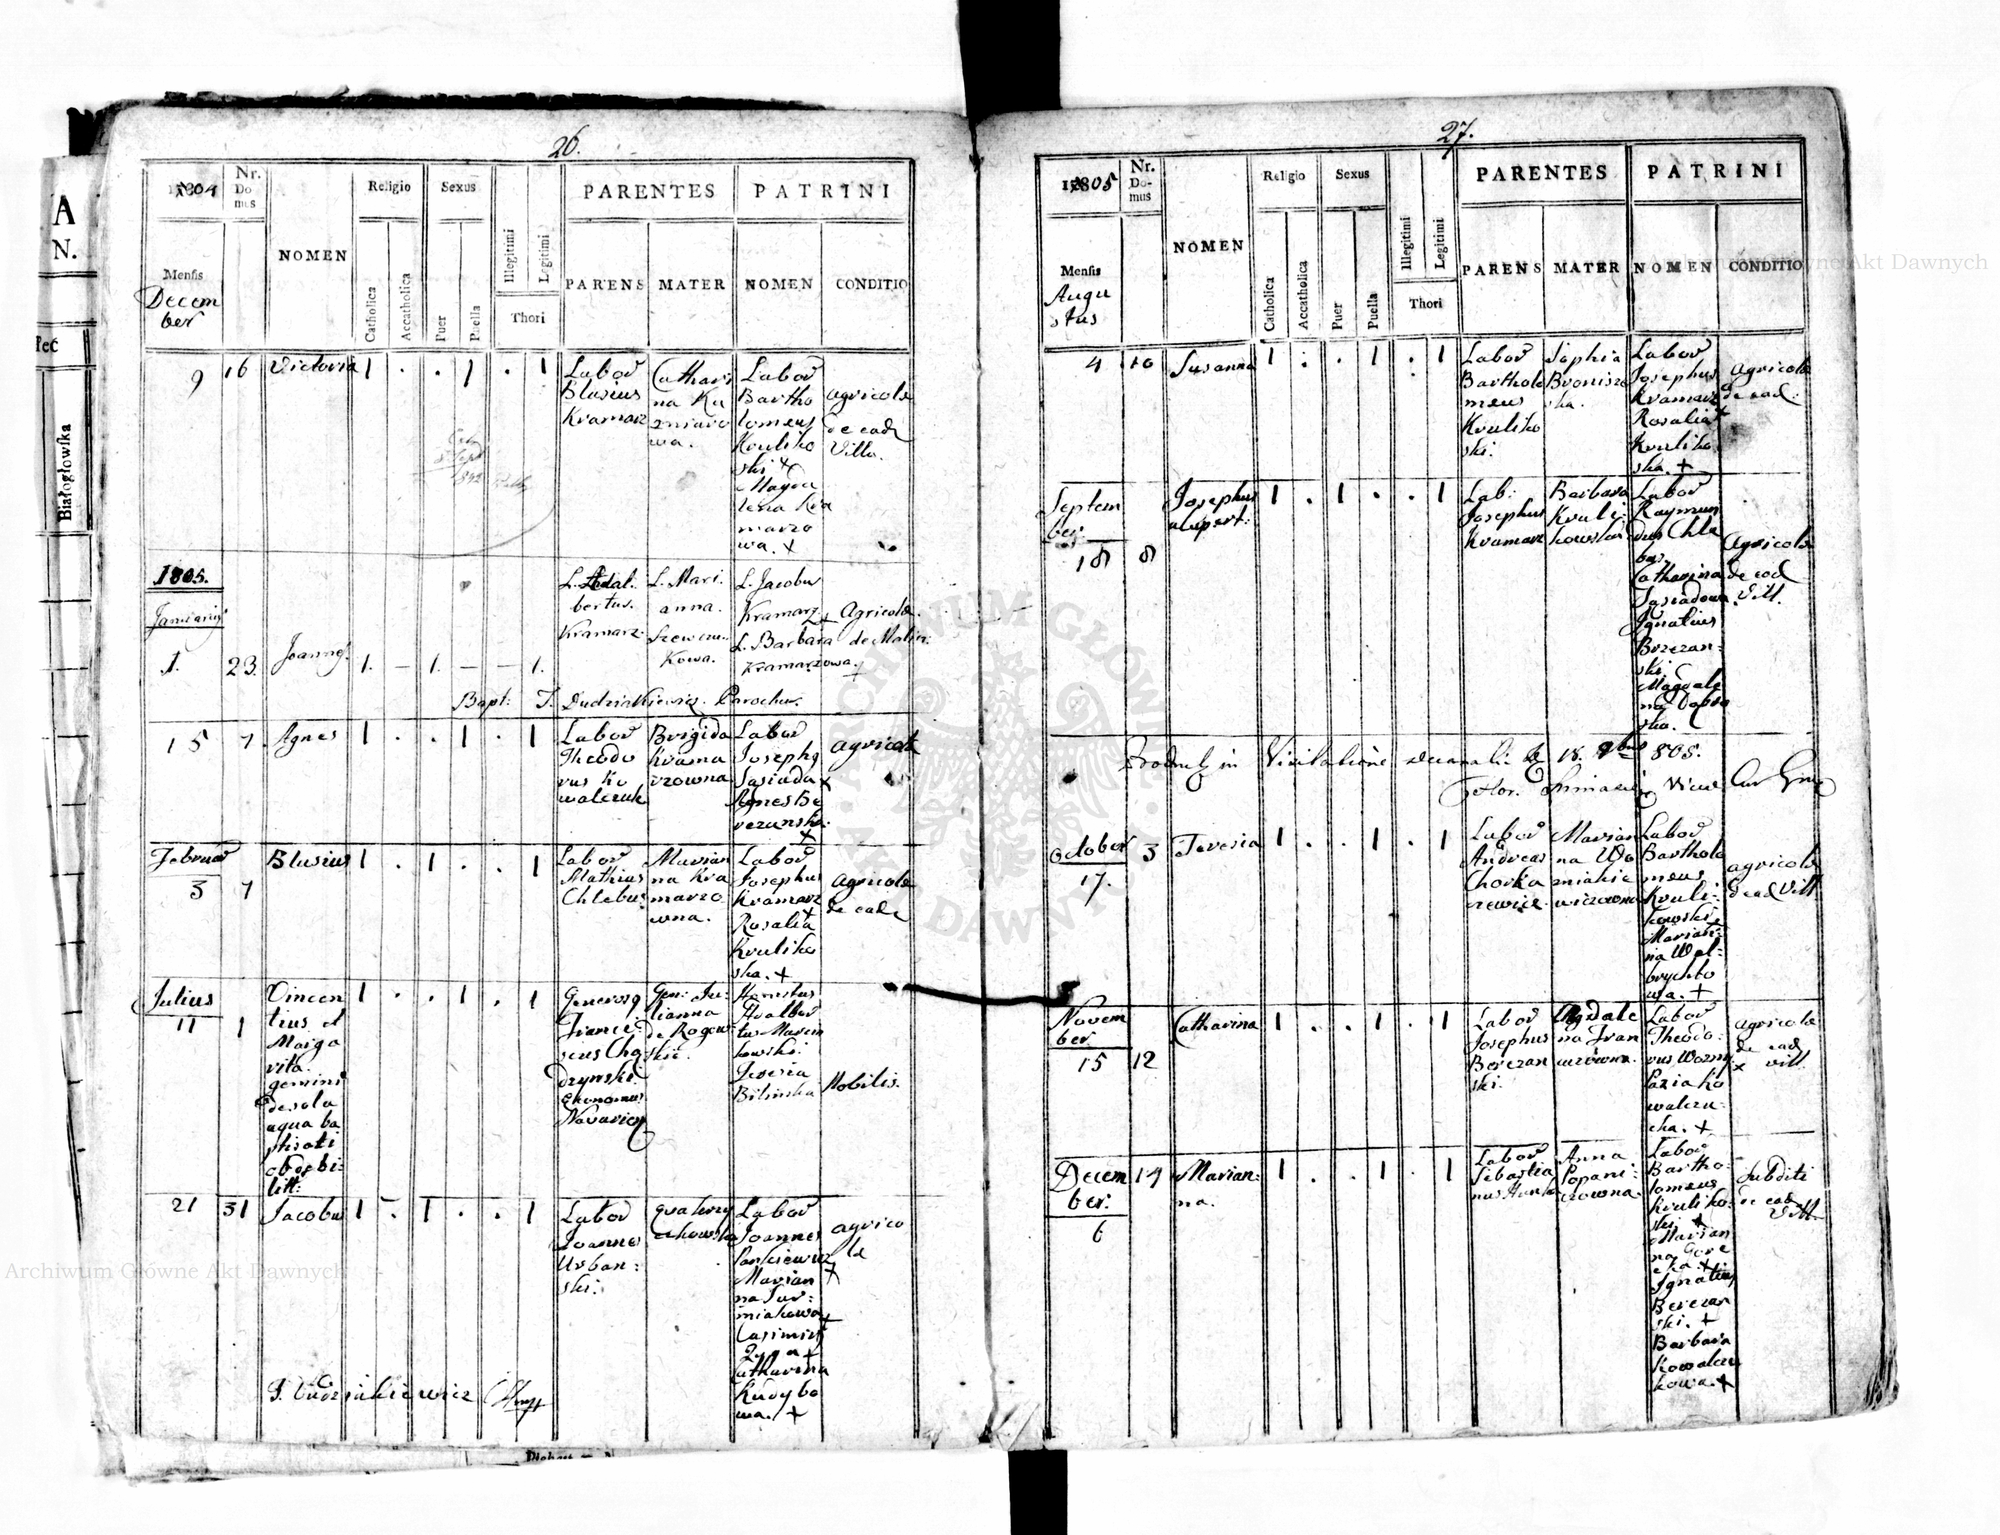 26.
1804
Nr.
Do
mus
NOMEN
Religio
Sexus
PARENTES
PATRINI
Mensis
Decem
ber
Catholica
Accatholica
Puer
Puella
Illegitimi
Legitimi
Thori
PARENS
MATER
NOMEN
CONDITIO
9
16
Victoria
1 . . 1 . 1
Labor
Blasius
Kramarz
Cathari
na Ku
zniaro
wa.
Labor
Bartho
lomeus
Kruliko
ski +
Magda
lena Kra
marzo
wa. +
Agricolæ
de ead
Villa.
1805.
Januarius
1.
23.
Joannes
1. – 1. – – 1.
L. Adal
bertus.
Kramarz
L. Mari
anna.
Szewczu
kowa.
L. Jacobus
Kramarz +
L. Barbara
Kramarzowa. +
Agricolæ.
Bapt: J. Dudziakiewicz. Parochus.
15
7.
Agnes
1 . . 1 . 1
Labor
Theodo
rus Ko
walczuk
Brigida
Krama
rzowna
Labor
Josephg
Sasiada +
Agnes Be
rezanska
+
agricol
Februar
3
7
Blasius
1 . 1 . . 1
Labor
Mathias
Chlebus
Marian
na Kra
marzo
wna.
Labor
Josephus
Kramarz +
Rosalia
Kruliko
ska. +
agricolæ
de ead
Julius
11
1
Vincen
tius et
Marga
rita.
gemini
de sola
aqua ba
ptisati
ob debi
lit:
1 . . 1 . 1
Generosg
Franci
scus
Ekonomus
Gen: Ju
lianna
de Rogow
skie.
Labor
Marcin
kowski.
Teresia
Bilinska
Nobilis.
21
31
Jacobus
1 . 1 . . 1
Labor
Joannes
Urban:
ski.
Labor
Joannes
Pankiewicz +
Marian
na Sur:
miakowa +
Casimir
+
Catharina
Kudybo
wa. +
agrico
læ
J. Dudziakiewicz
27.
1805
Nr.
Do-
mus
NOMEN
Religio
Sexus
PARENTES
PATRINI
Mensis
Augu
stus
Catholica
Accatholica
Puer
Puella
Illegitimi
Legitimi
Thori
PARENS
MATER
NOMEN
CONDITIO
4
10
Susanna
1 . . 1 . 1
Labor
Bartholo
meus
Kruliko
ski.
Sophia
Bronisze
ska.
Labor
Josephus
Kramarz +
Rosalia
Kruliko
ska. +
Agricolæ
de ead.
Septem
ber.
18
8
Josephus
1 . 1 . . 1
Lab:
Josephus
Kramarz
Barbara
Kruli:
kowska
Labor
Raymun
dus Chle
bus.
Catharina
Sasiadowa
Ignatius
Brzezan:
ski.
Magdale
na Dabro
ska.
Agricolæ
de ead
Vill.
in Visitatione Decanali 18. 9bris 805.
October
17.
3
Teresia
1 . . 1 . 1
Labor
Andreas
Chorka
zewicz.
Marian
na Wo
zniakie
wiczowna
Labor
Bartholo
meus
Kruli:
kowski +
Marian:
na Wol:
brychto
wa. +
agricolæ
de ead Vill
Novem
ber.
15
12
Catharina
1 . . 1 . 1
Labor
Josephus
Berezan
ski.
Magdale
na Fran
czuzowna.
Labor
Theodo:
rus Wozny +
Paziako
walczu:
cha. +
agricolæ
de ead
vill
Decem
ber:
6
14
Marian:
na.
1 . . 1 . 1
Labor
Sebastia
nus
Anna
Popani:
czowna.
Labor
Bartho:
lomeus
Kruliko:
ski. +
Marian
na Gore
cka. +
Ignatius
Berezan
ski. +
Barbara
Kowalczu
kowa. +
Subditi
de ead
Vill.
Białogłowska
Archiwum Główne Akt Dawnych
Archiwum Główne Akt Dawnych
ARCHIWUM GŁÓWNE · AKT DAWNYCH ·